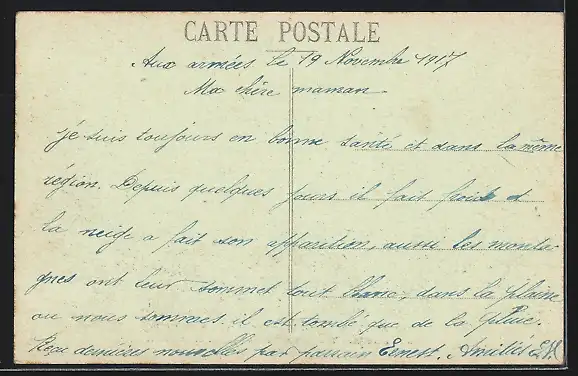 CARTE POSTALE
Aux armées le 19 Novembre 1917
Ma chère maman
Je suis toujours en bonne santé et dans la même
région. Depuis quelques jours il fait froid et
la neige a fait son apparition, aussi les monta
gnes ont leur sommet tout blanc, dans la plaine
ou nous sommes il est tombé que de la pluie.
Reçu dernières nouvelles par parrain Ernest. Amitiés